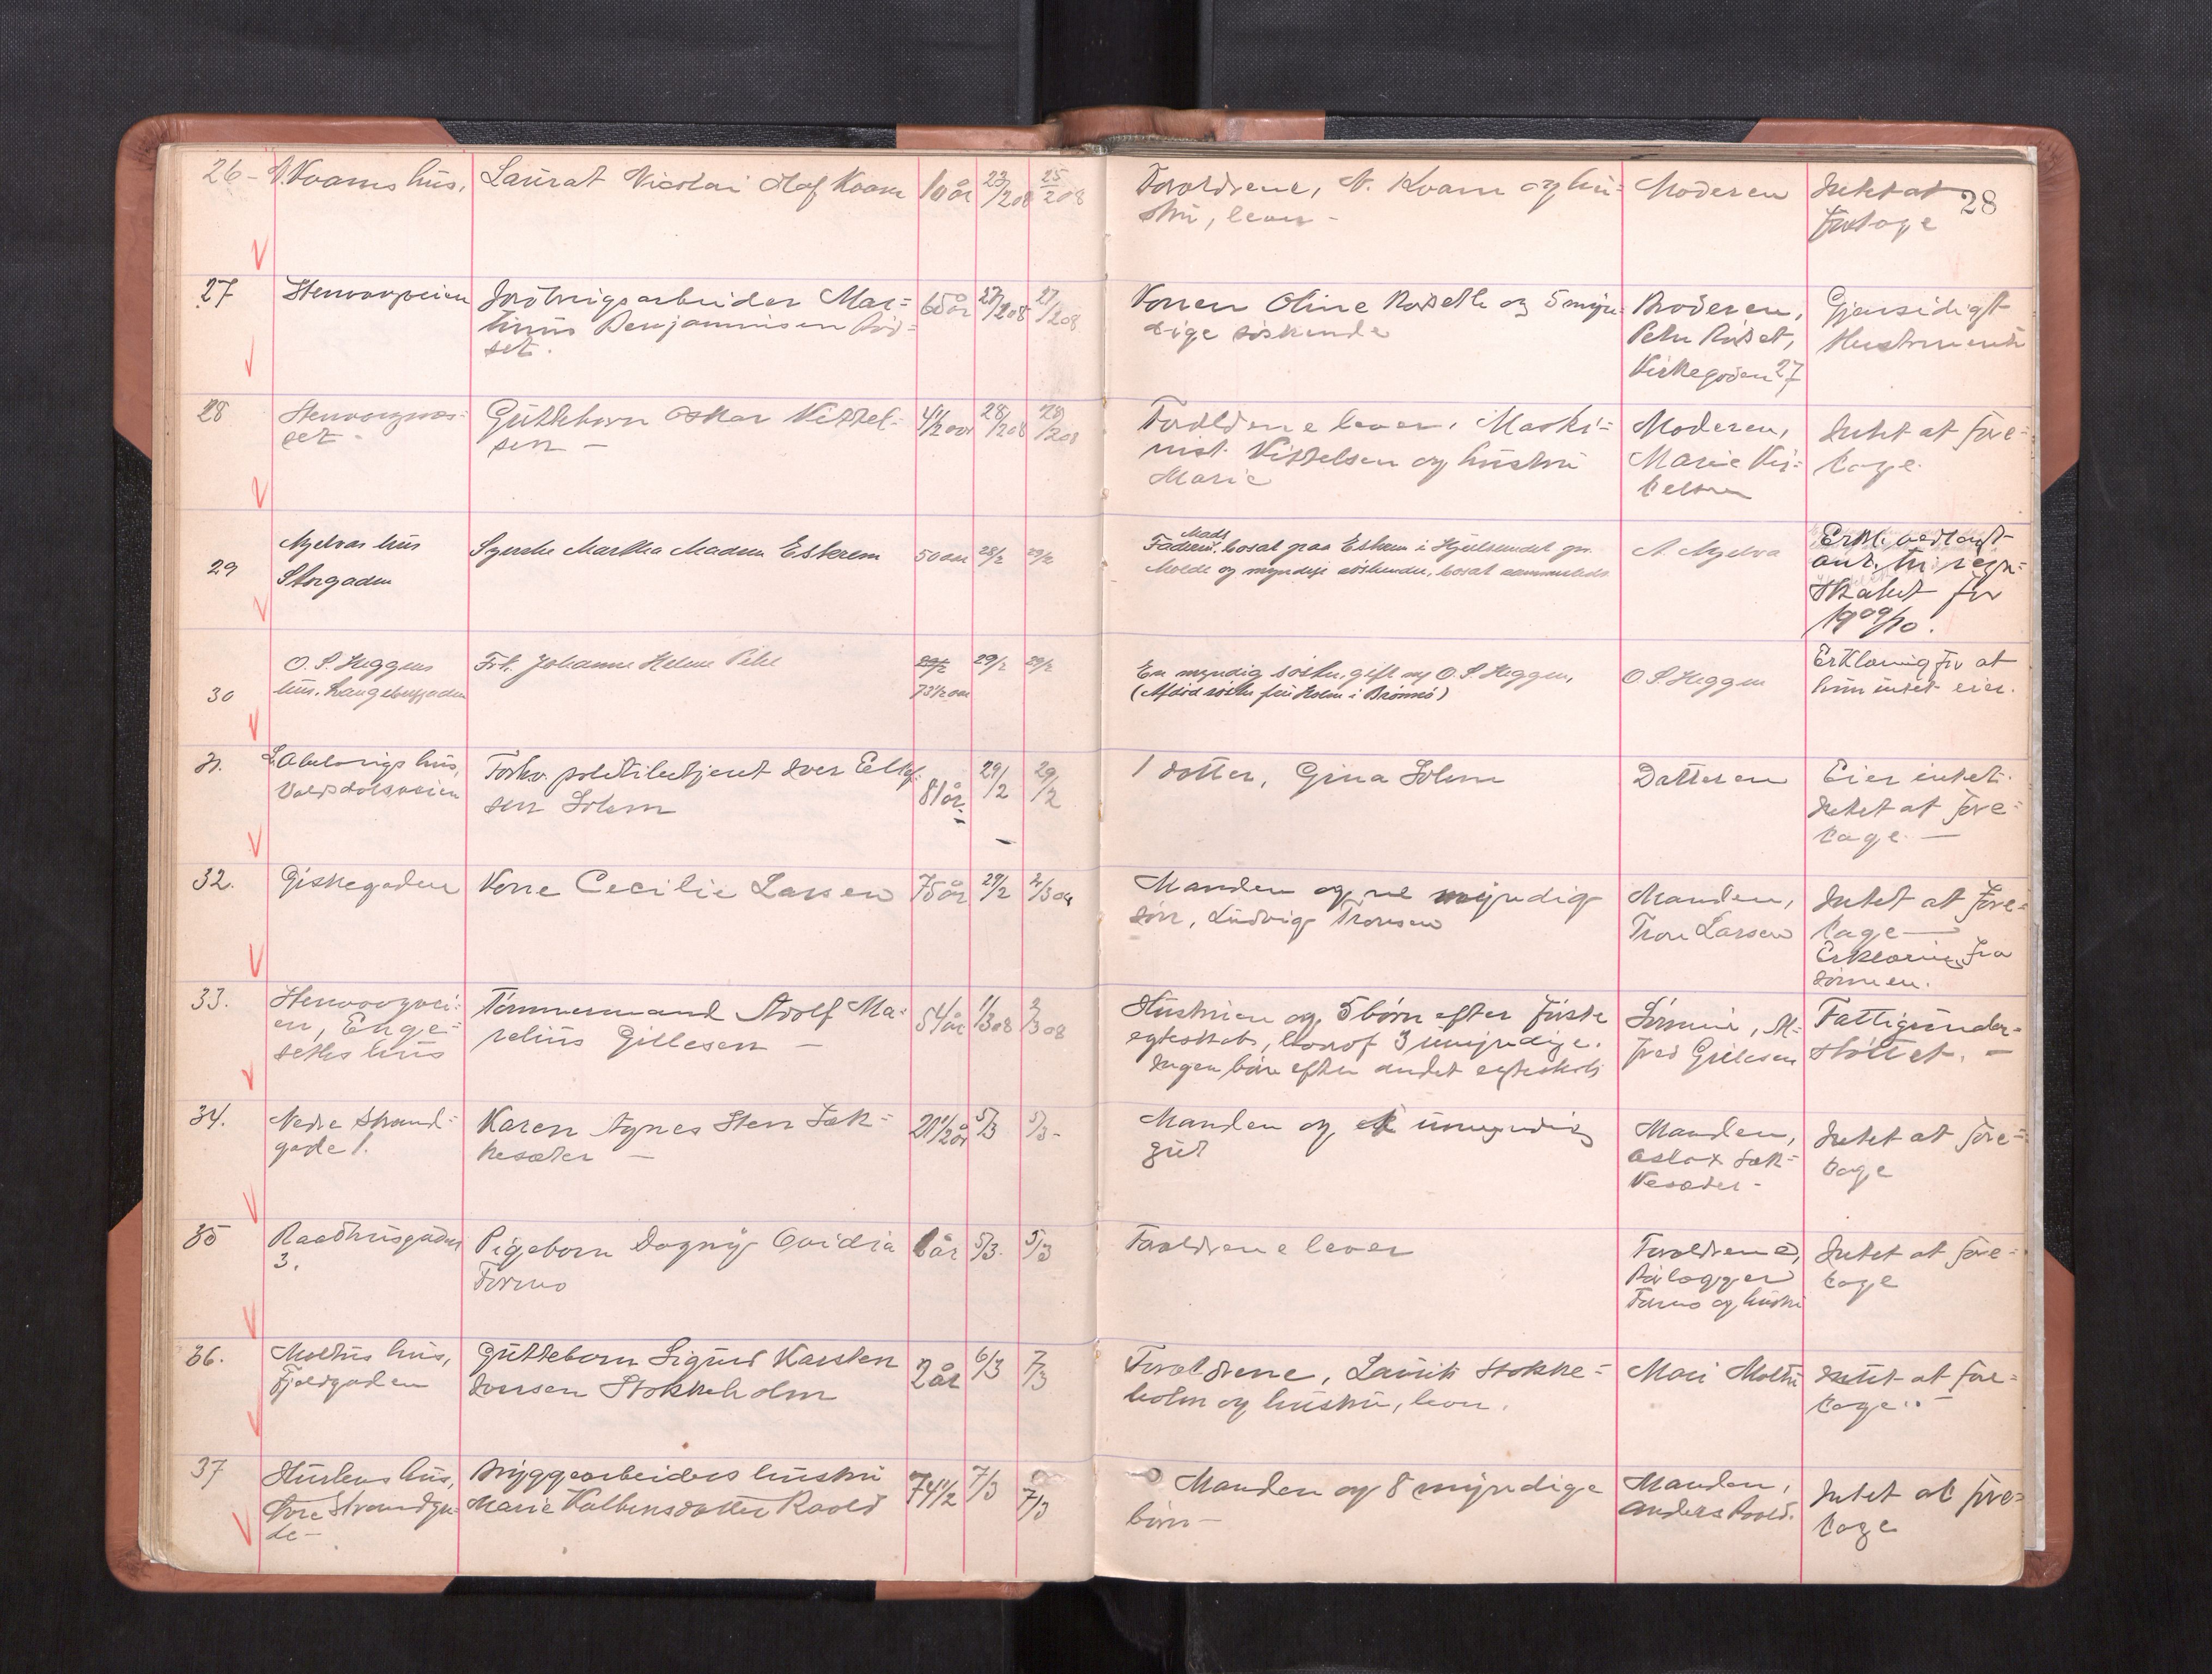 28
26 - N. Kvams hus, Laurat Nicolai Olaf Kvam 10 år 23/2 08 25/2 08 Forældrene, N. Kvam og hu=
stru, lever - Moderen Intet at
foretage
27 Stenvaagveien Grøtvigsarbeider Mar= 65 år 27/2 08 27/2 08 Konen Oline Rødseth og 5 myn=
tinus Benjaminsen Rød=
set.
dige søskende Broderen,
Peter Rødset,
Kirkegaden 27
Gjensidigt
testamente
28 Stenvaagnæs=
set - Gutteborn Oskar Kittel=
sen - 4 1/2 aar 28/2 08 28/2 08 Forældrene lever. Maski=
nist Kittelsen og hustru
Marie Moderen,
Marie Kit=
telsen Intet at fore=
tage.
29 Myelvas hus
Storgaden Syerske Martha Madsen Eskrem 50 aar 28/2 29/2 Faderen Mads bosat paa Eskrem i Hjelsundet pr.
Molde og myndige søskende, bosat sammesteds A. Myelva Erkl. vedlagt
ant. til regn=
skabet for
1909/10.
30 O. P. Heggens
hus. Langebrygaden Frk. Johanne Helene Pihl 29/2
73 1/2 aar 29/2 29/2 En myndig søster, gift m/ O. P. Heggen,
(Afdød søster fru Holm i Brønnø) O P. Heggen Erklæring for at
hun intet eier.
31. L. Abelvigs hus,
Volsdalsveien Forhv. politibetjent Iver Ellef=
sen Solem 81 år - 29/2 29/2 1 datter, Gina Solem Datteren Eier intet.
Intet at fore=
tage. -
32. Giskegaden Kone Cecilie Larsen 75 år 29/2 2/3 08 Manden og en myndig
søn, Ludvig Tronsen Manden,
Tron Larsen Intet at fore=
tage -
Erklæring fra
sønnen.
33. Stenvaagvei=
en, Enge=
seths hus Tømmermand Adolf Ma=
relius Gillesen - 54 år 1/3 08 2/3 08 Hustruen og 5 børn efter første
egteskab, hvoraf 3 umyndige.
Ingen børn efter andet egteskab Sønnen, Al=
fred Gillesen Fattigunder=
støttet. -
34. Nedre Strand=
gade 1. Karen Agnes Sten Sæk=
kesæter - 21 1/2 år 5/3 5/3 - Manden og et umyndig
gut Manden,
Aslak Sæk=
kesæter - Intet at fore=
tage
35 Raadhusgaden
3. Pigeborn Dagny Ovidia
Formo 1 år 5/3. 5/3 Forældrene lever Forældrene,
Rørlægger
Formo og hustru Intet at fore=
tage
36. Moltus hus,
Fjeldgaden Gutteborn Sigurd Karsten
Iversen Stokkeholm 2 år 6/3 7/3 Forældrene, Laurits Stokke=
holm og hustru, lever. Mari Moltu Intet at fore=
tage. -
37 Hurlens hus,
Øvre Strandga=
de - Bryggearbeiders hustru
Marie Kolbensdatter Roald 74 1/2 7/3 7/3 Manden og 8 myndige
børn - Manden,
Anders Roald. Intet at fore=
tage